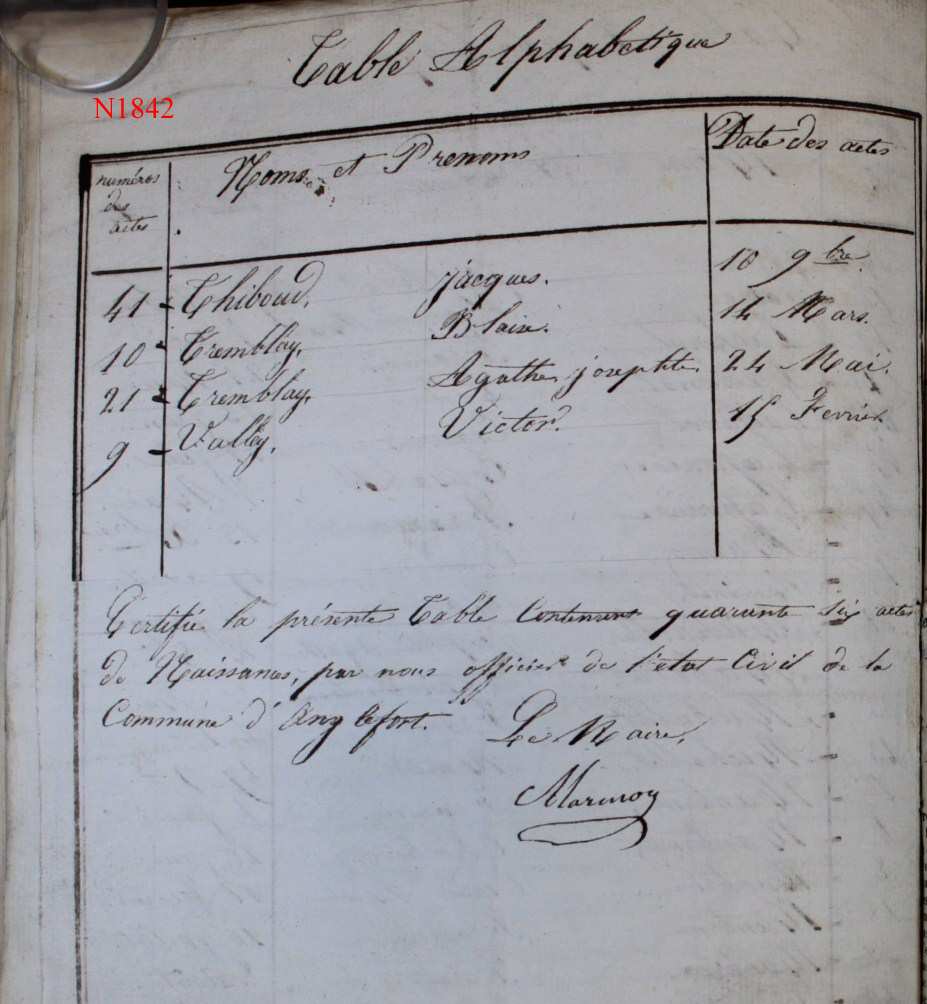 Table Alphabetique
N1842
numéros des actes Noms et Prenoms Date des actes
41 Thiboud, jacques. 10 9bre.
10 Tremblay, Blaise. 14 Mars.
21 Tremblay, Agathe josephte. 24 Mai.
9 Valley, Victor. 15 Fevrier
Certifié la présente Table Contenant quarante six actes
de Naissances, par nous officier de l'état Civil de la
Commune d'Anglefort. Le Maire,